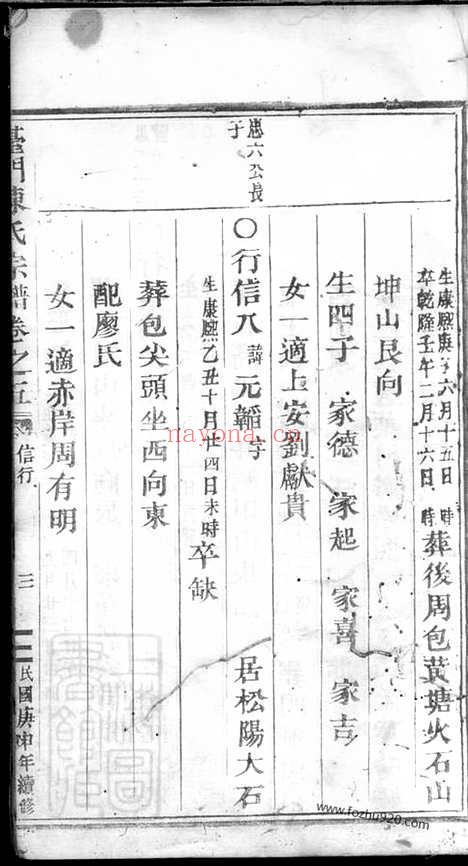 生康熙庚子六月十五日 時
卒乾隆壬午二月十六日 時
葬後周包黃塘火石山
坤山艮向
生四子 家德 家起 家喜 家吉
女一適上安劉獻貴
惠六公長子
〇行信八 諱元韜子 居松陽大石
生康熙乙丑十月廿四日未時卒缺
葬包尖頭坐西向東
配廖氏
女一適赤岸周有明
臺門陳氏宗譜卷之五 信行 三 民國庚申年續修
nayona.cn
www.fozhu920.com